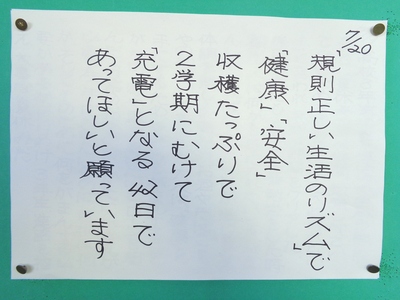 7/20
「規則正しい生活のリズム」で
「健康」「安全」
収穫たっぷりで
2学期にむけて
「充電」となる42日で
あってほしいと願っています